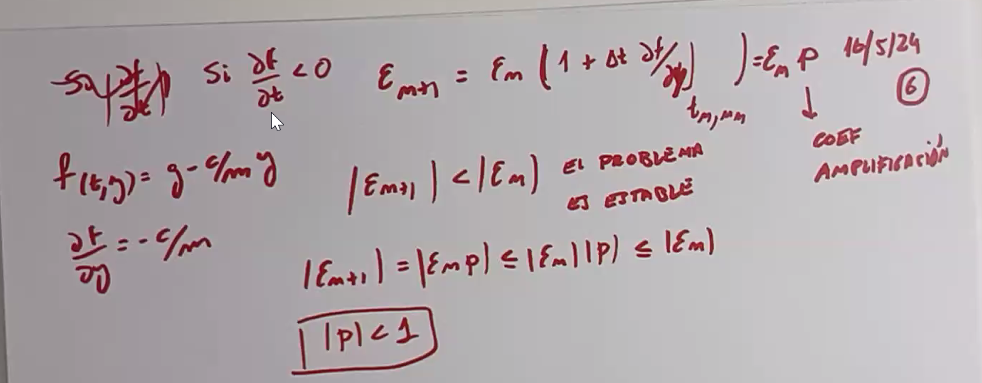 Si ∂f/∂t < 0 ε_{m+1} = ε_m (1 + Δt ∂f/∂y|_{t_m, u_m}) = ε_m ρ 16/5/24
⑥
↓
COEF
AMPLIFICACIÓN
f(t,y) = g - c/m y
|ε_{m+1}| < |ε_m| EL PROBLEMA
ES ESTABLE
∂f/∂y = - c/m
|ε_{m+1}| = |ε_m ρ| ≤ |ε_m| |ρ| ≤ |ε_m|
|ρ| < 1